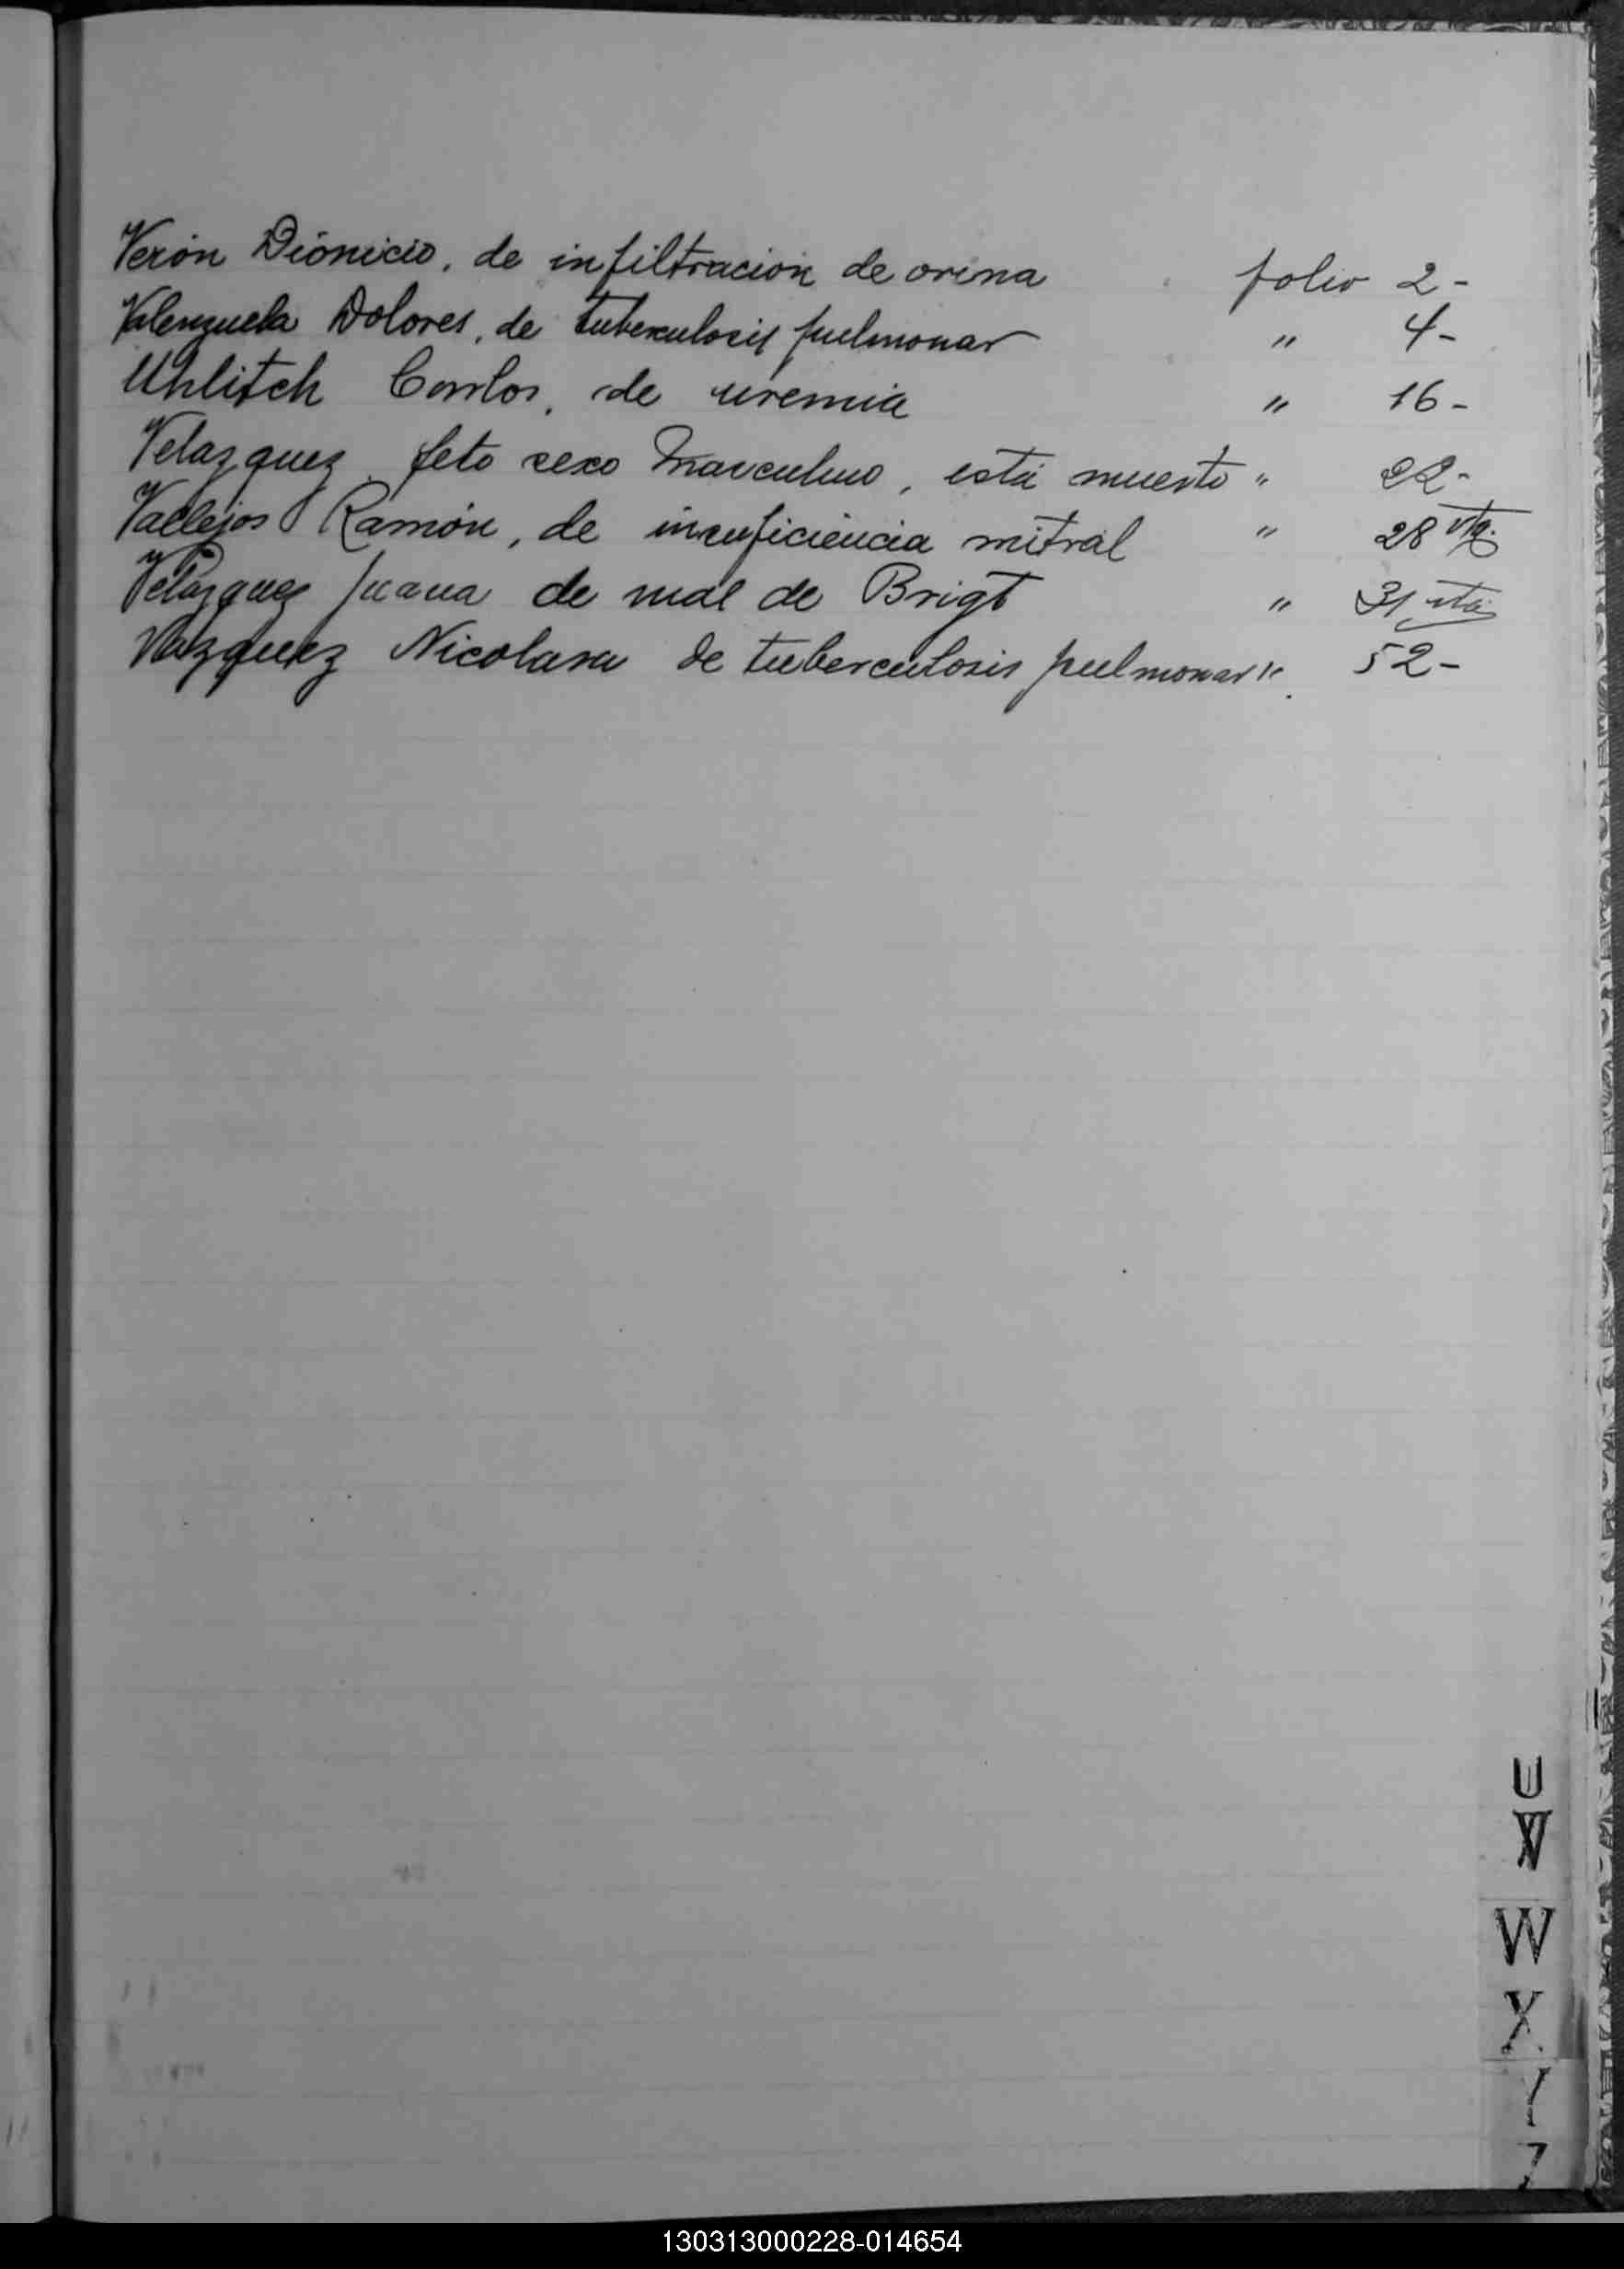 Verón Dionicio, de infiltración de orina folio 2-
Valenzuela Dolores, de tuberculosis pulmonar " 4-
Uhlitch Carlos, de uremia " 16-
Velazquez, feto sexo masculino, está muerto " 22-
Vallejos Ramón, de insuficiencia mitral " 28 vta.
Velazquez Juana de mal de Brigt " 31 vta
Vazquez Nicolasa de tuberculosis pulmonar " 52-
U
V
W
X
Y
Z
130313000228-014654